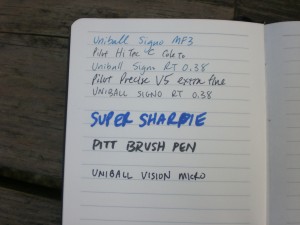 Uniball Signo MP3
Pilot Hi Tec C Coleto
Uniball Signo RT 0.38
Pilot Precise V5 extra fine
UNIBALL SIGNO RT 0.38
SUPER SHARPIE
PITT BRUSH PEN
UNIBALL VISION MICRO